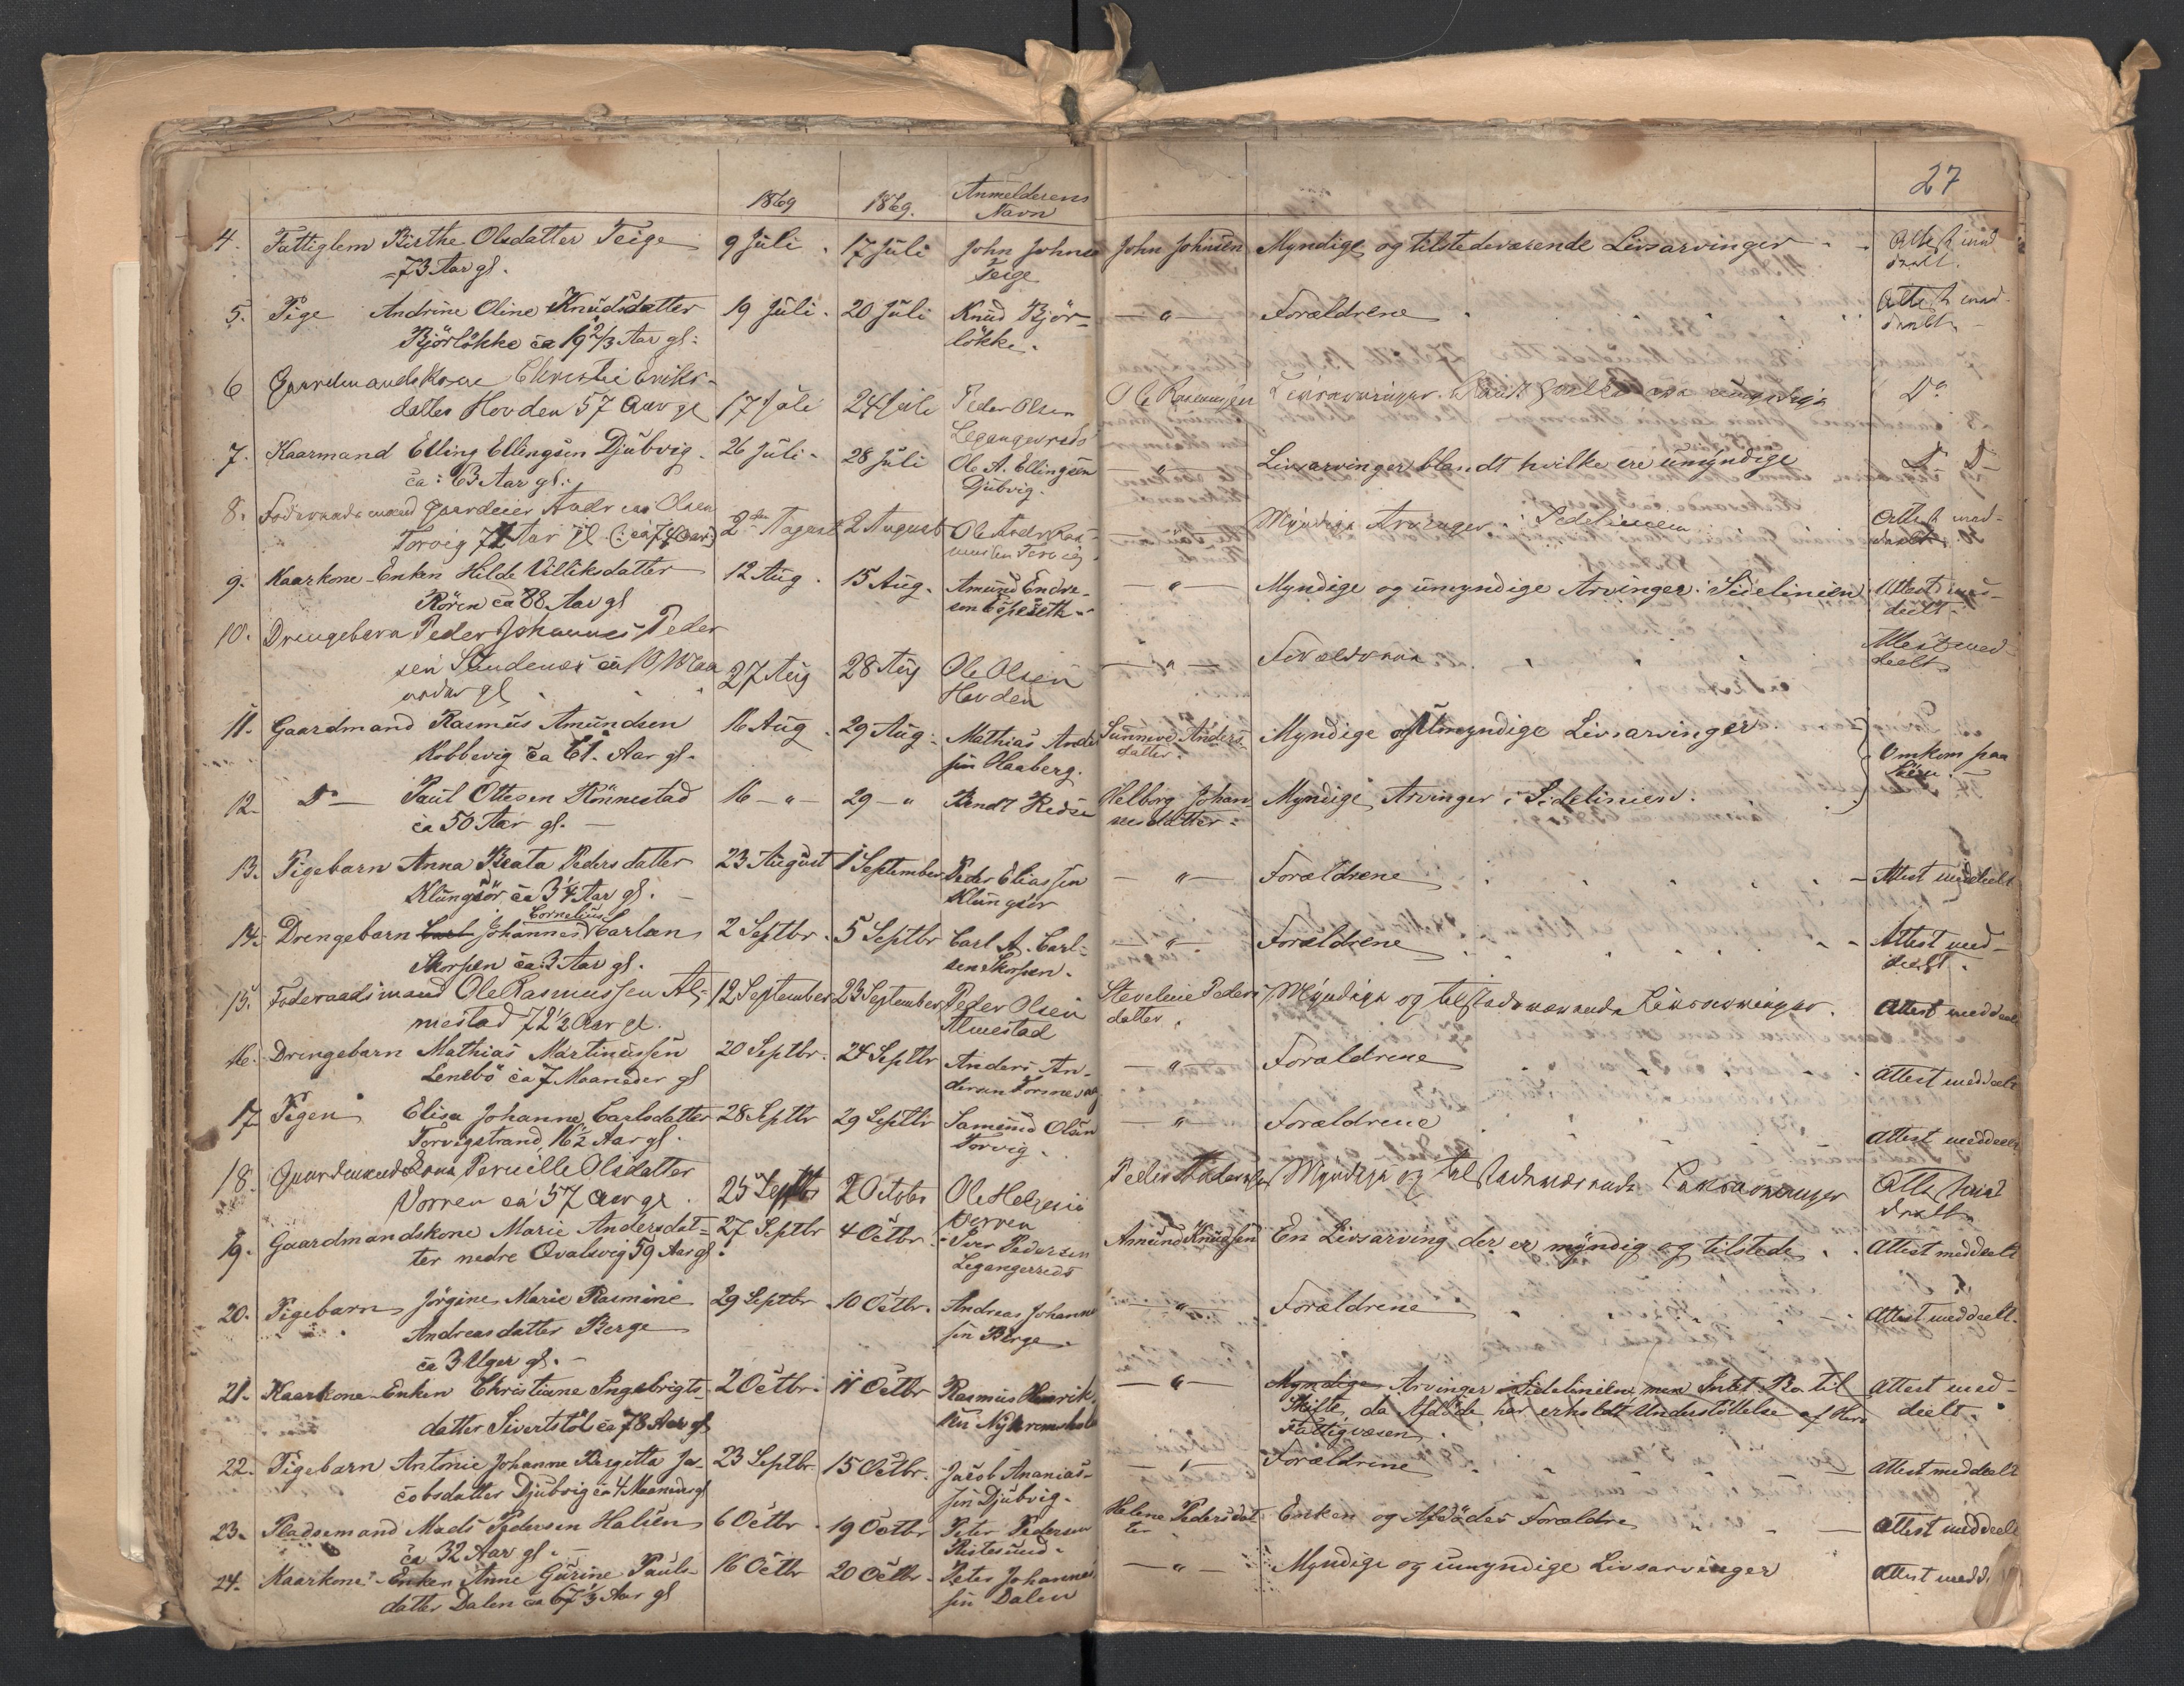 27
1869 1869. Anmelderens
Navn
4. Fattiglem Birthe Olsdatter Teige 9 Juli 17 Juli John Johnse John Johnsen Myndige og tilstedeværende Livsarvinger Attest med
73 Aar gl. Teige deelt.
5. Pige Andrine Oline Knudsdatter 19 Juli 20 Juli Knud Bjør- — " — Forældrene Attest med-
Bjørløkke ca 19 2/3 Aar gl. løkke. deelt.
6 Gaardmandskone Christi Eriks-
datter Hovden 57 Aar gl 17 Juli 24 Juli Peder Olsen Ole Rasmussen Livsarvinger umyndige Do
Legangerreds
7. Kaarmand Elling Ellingsen Djubvig. 26 Juli 28 Juli Ole A. Ellingsen — " — Livsarvinger blandt hvilke ere umyndige D- D-
ca: 63 Aar gl. Djubvig.
8. Føderaadsmand Gaardeier Andreas Olsen
Torvig 72 Aar gl (: ca 74 Aar:) 2den August 2 August Ole Andr Ras- — Myndige Arvinger i Sidelinien Attest med-
mussen Torvig deelt
9. Kaarkone-Enken Hilde Villiksdatter 12 Aug. 15 Aug. Amund Endre- — " — Myndige og umyndige Arvinger i Sidelinien Attest med-
Røren ca 88 Aar gl sen Espeseth deelt.
10. Drengebarn Peder Johannes Peder
sen Sandenes ca 10 Maa 27 Aug 28 Aug Ole Olsen — " — Forældrene Attest med-
neder gl Hovden deelt
11. Gaardmand Rasmus Amundsen 16 Aug 29 Aug. Mathias Ander Sunneve Anders Myndige og Umyndige Livsarvinger
Kobbevig ca 61. Aar gl. sen Haaberg. datter. Omkom paa
Søen.
12. Do — Paul Ottesen Rønnestad 16 — " — 29 — " Bendt Hidse Helborg Johan Myndige Arvinger i Sidelinien.
ca 50 Aar gl. — nesdatter
13. Pigebarn Anna Beata Pedersdatter 23 August 1 September Peder Eliassen — " — Forældrene Attest meddeelt
Klungsør ca 3 1/4 Aar gl. Klungsør
Cornelius
14. Drengebarn Carl Johannes Carlsen 2 Septbr. 5 Septbr Carl A. Carl- — " — Forældrene Attest med-
Skorpen ca 3 Aar gl. sen Skorpen. deelt.
15. Føderaadsmand Ole Rasmussen Al- 12 September 23 September Peder Olsen Stevelene Peders Myndige og tilstedeværende Livsarvinger. Attest meddeelt
mestad 72 1/2 Aar gl. Almestad datter
16. Drengebarn Mathias Martinussen 20 Septbr. 24 Septbr Anders An- — " — Forældrene Attest meddeelt
Lenebø ca 7 Maaneder gl dersen
17 Pigen Elisa Johanne Carlsdatter 28 Septbr 29 Septbr Samund Olsen — " — Forældrene Attest meddeelt
Torvigstrand 16 1/2 Aar gl. Torvig.
18. Gaardmandskone Pernille Olsdatter
Vorren ca 57 Aar gl. 25 Septbr 2 Octobr Ole Helgesen Peder Andersen Myndige og tilstedeværende Livsarvinger Attest med
Vorren deelt
19. Gaardmandskone Marie Andersdat- 27 Septbr 4 Octbr. Iver Pedersen Amund Knudsen En Livsarving der er myndig og tilstede. Attest meddeelt
ter nedre Qvalsvig 59 Aar gl. Legangerreds
20. Pigebarn Jørgine Marie Rasmine 29 Septbr 10 Octbr. Andreas Johanne — " — Forældrene Attest meddeelt.
Andreasdatter Berge sen Berge
ca 3 Uger gl. —
21. Kaarkone-Enken Christiane Ingebrigts- 2 Octbr. 11 Octbr Rasmus Henrik — " — Myndige Arvinger i Sidelinien, men Intet Bo til Attest med-
datter Sivertstøl ca 78 Aar gl sen Skifte, da Afdøde har erholdt Understøttelse af Herø deelt.
Fattigvæsen
22. Pigebarn Antonie Johanne Bergitta Ja- 23 Septbr. 15 Octbr. Jacob Ananias- — " — Forældrene Attest meddeelt
cobsdatter Djubvig ca 4 Maaneder gl sen Djubvig.
23. Pladsemand Mads Pedersen Halsen 6 Octbr 19 Octbr Peter Pedersen Helene Pedersdat Enken og Afdødes Forældre Attest meddeelt
ca 32 Aar gl. Ristesund. ter
24. Kaarkone-Enken Anne Gurine Pauls- 16 Octbr 20 Octbr. Peter Johannes — " — Myndige og umyndige Livsarvinger Attest medd.
datter Dalen ca 67 1/3 Aar gl sen Dalen